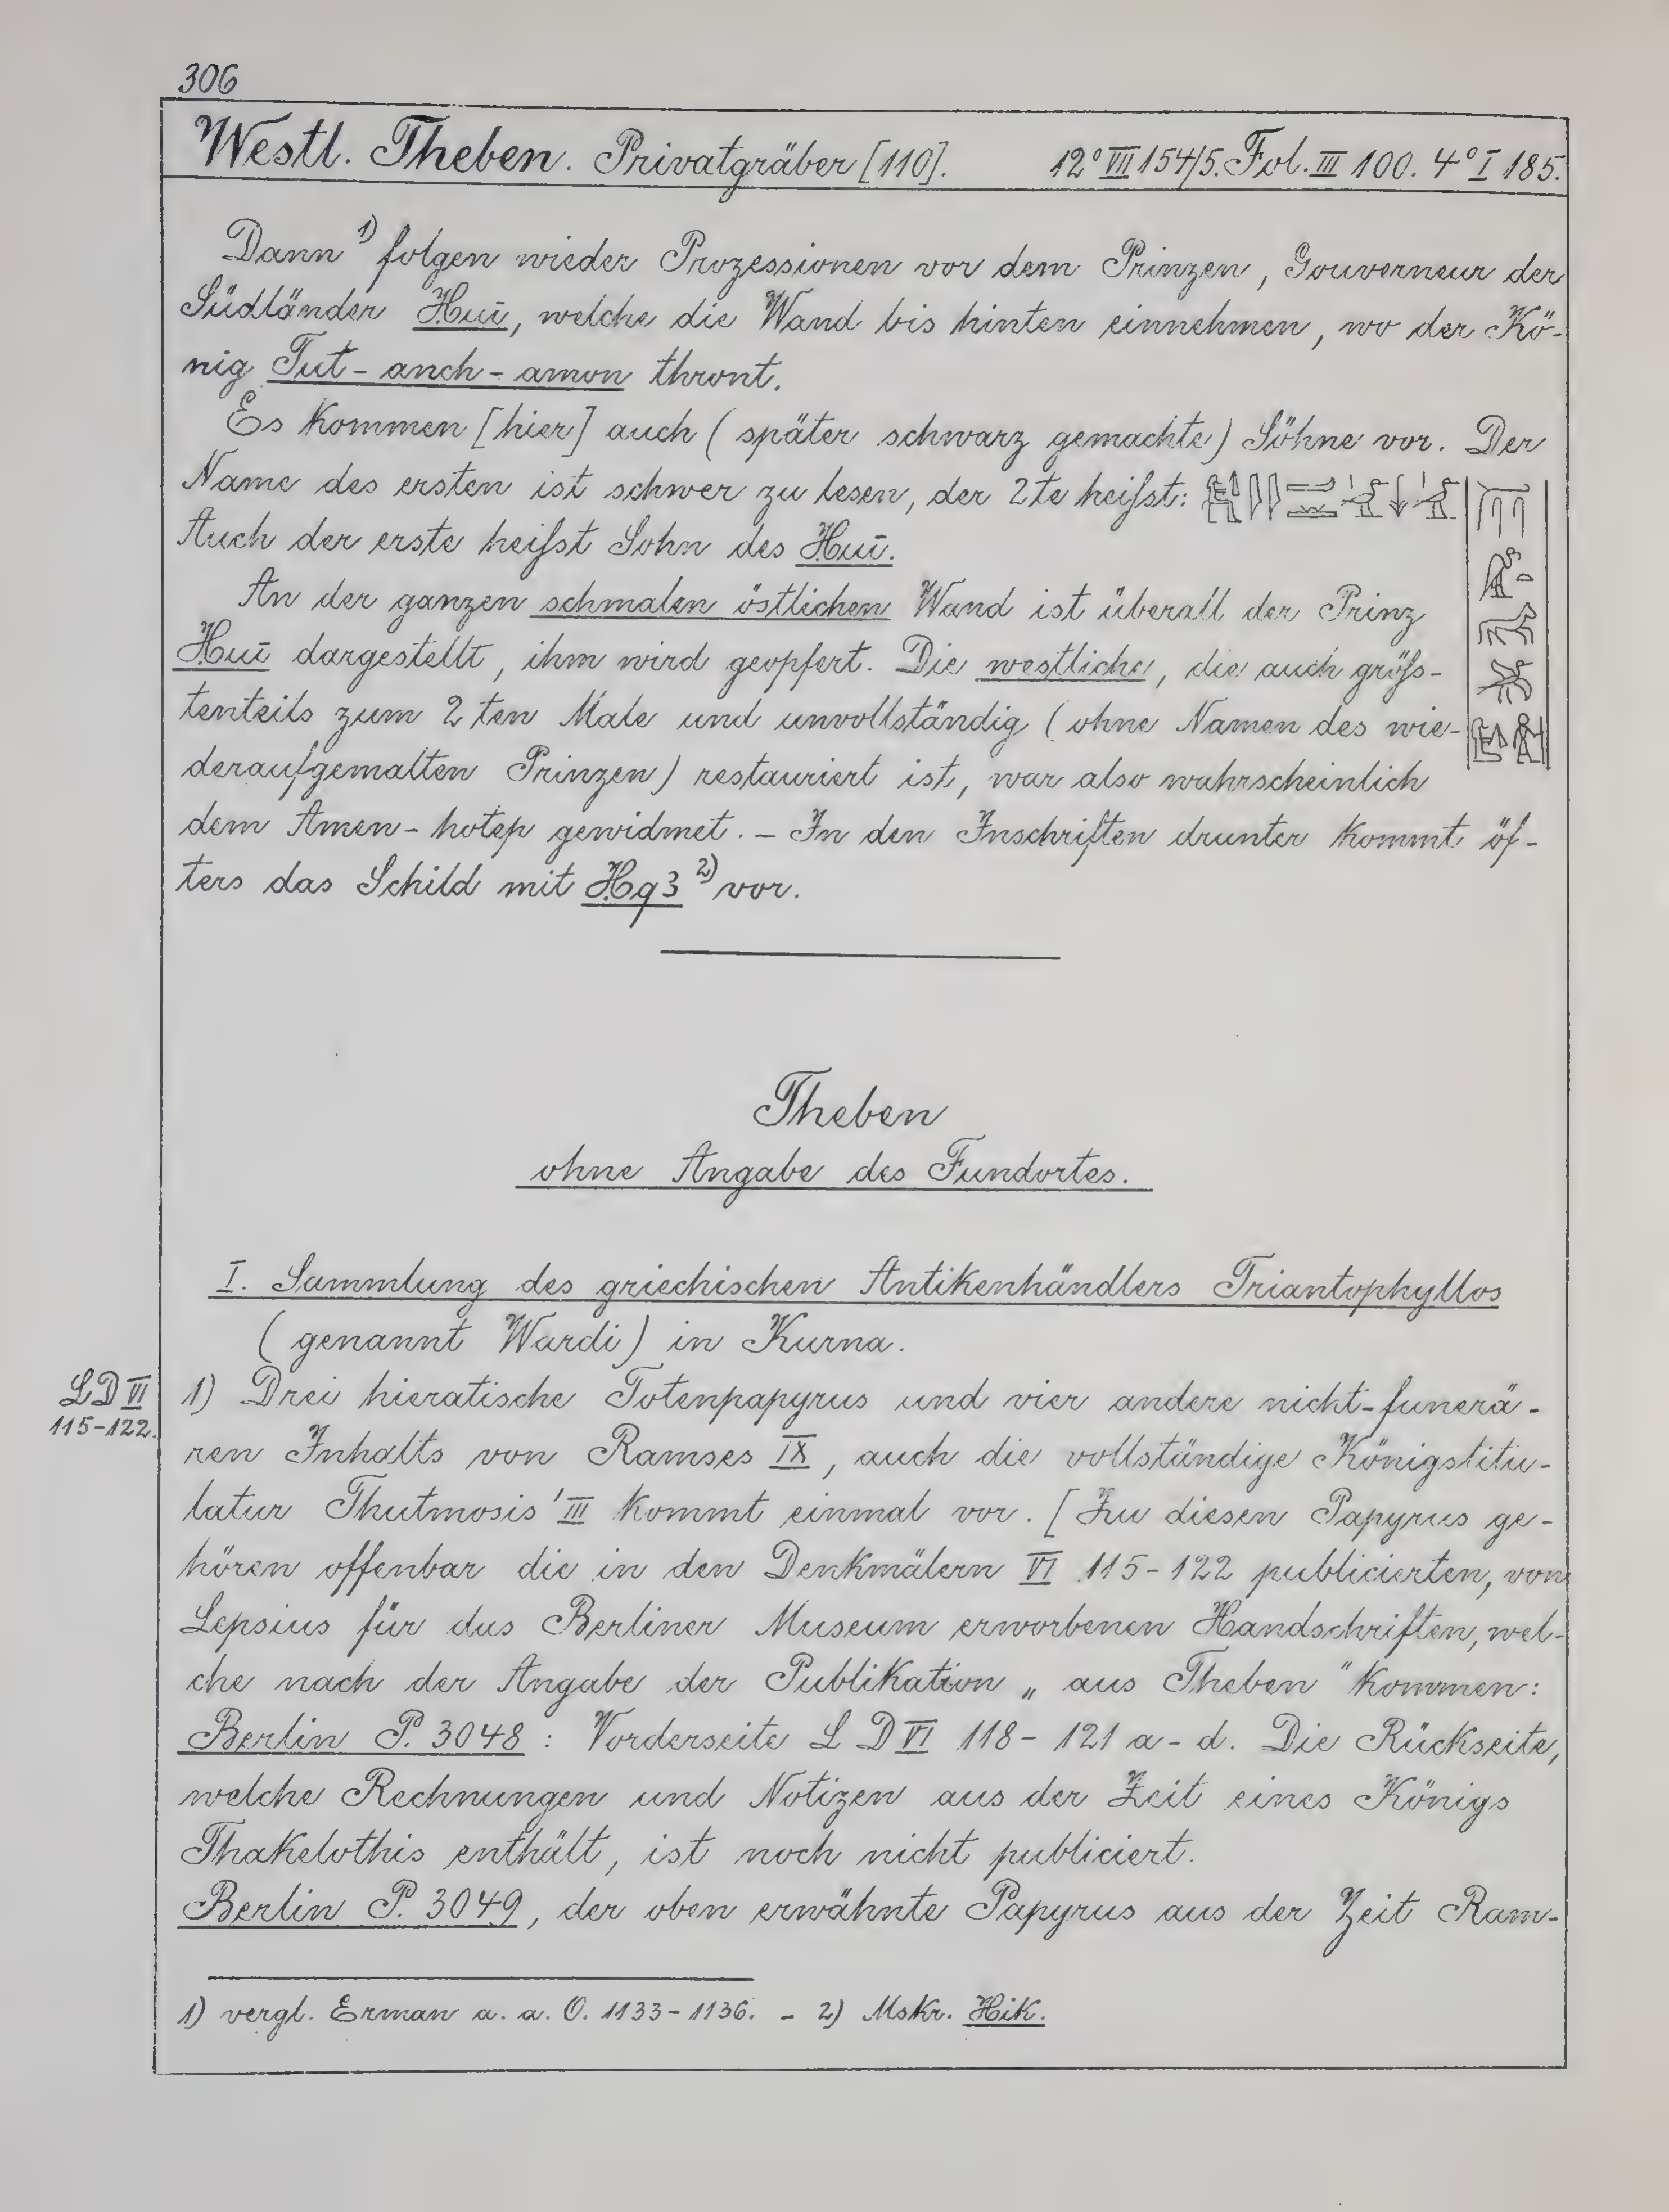 306
Westl. Theben. Privatgräber [110]. 12° VII 154/5. Fol. III 100. 4° I 185.
Dann 1) folgen wieder Prozessionen vor dem Prinzen, Gouverneur der
Südländer Ḥuï, welche die Wand bis hinten einnehmen, wo der Kö-
nig Tut-anch-amon thront.
Es kommen [hier] auch (später schwarz gemachte) Söhne vor. Der
Name des ersten ist schwer zu lesen, der 2te heifst:
Auch der erste heifst Sohn des Ḥuï.
An der ganzen schmalen östlichen Wand ist überall der Prinz
Ḥuï dargestellt, ihm wird geopfert. Die westliche, die auch gröfs-
tenteils zum 2ten Male und unvollständig (ohne Namen des wie-
deraufgemalten Prinzen) restauriert ist, war also wahrscheinlich
dem Amen-hotep gewidmet. – In den Inschriften drunter kommt öf-
ters das Schild mit Ḥq3 2) vor.
Theben
ohne Angabe des Fundortes.
I. Sammlung des griechischen Antikenhändlers Triantophyllos
(genannt Wardi) in Kurna.
LD VI
115-122.
1) Drei hieratische Totenpapyrus und vier andere nicht-funerä-
ren Inhalts von Ramses IX, auch die vollständige Königstitu-
latur Thutmosis' III kommt einmal vor. [Zu diesen Papyrus ge-
hören offenbar die in den Denkmälern VI 115-122 publicierten, von
Lepsius für das Berliner Museum erworbenen Handschriften, wel-
che nach der Angabe der Publikation „aus Theben" kommen:
Berlin P. 3048: Vorderseite L D VI 118-121 a-d. Die Rückseite,
welche Rechnungen und Notizen aus der Zeit eines Königs
Thakelothis enthält, ist noch nicht publiciert.
Berlin P. 3049, der oben erwähnte Papyrus aus der Zeit Ram-
1) vergl. Erman a. a. O. 1133-1136. – 2) Mskr. Hik.